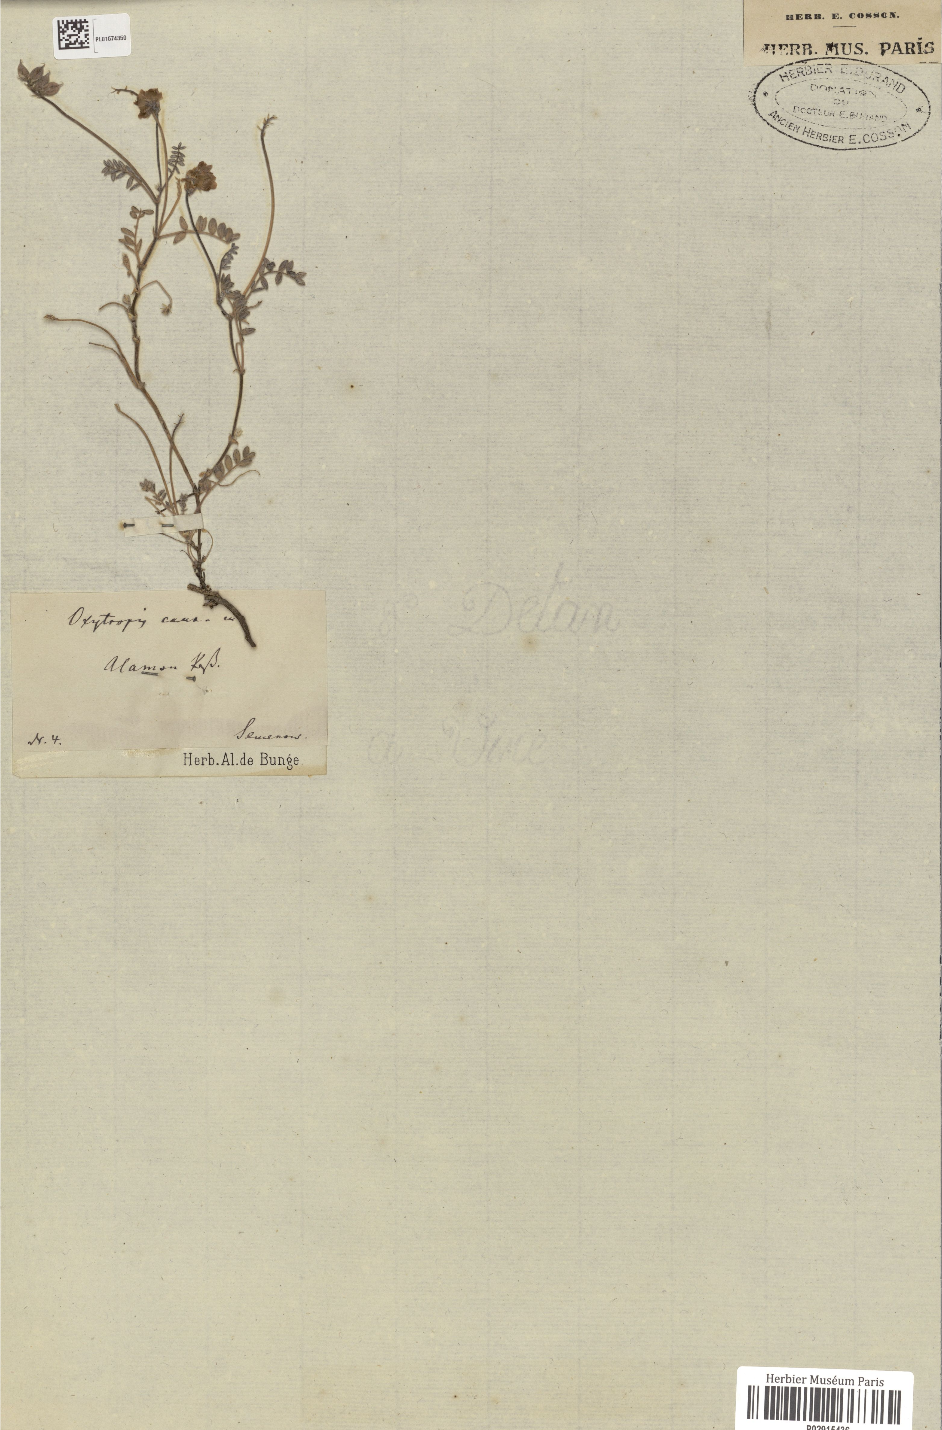 PL01674350
HERB. E. COSSON.
HERB. MUS. PARIS
HERBIER E. DURAND
DONATION
DU
DOCTEUR E. DURAND
ANCIEN HERBIER E. COSSON
Oxytropis
Alaman
Nr. 4. Semenow.
Herb. Al. de Bunge
Detam
Herbier Muséum Paris